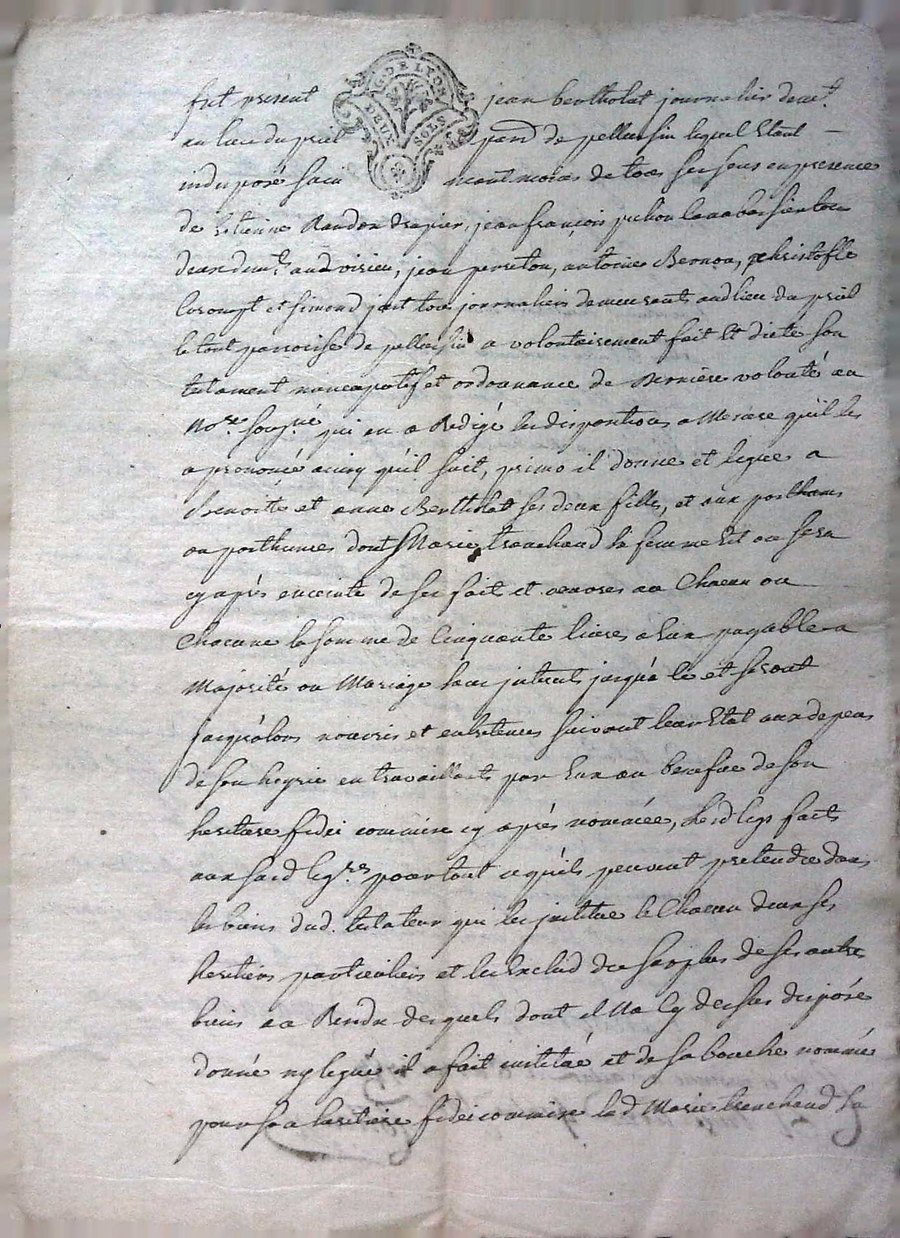 G. DE LYON
DEUX SOLS
fut présent jean berthollat journalier demt.
au lieu du pred parr. de pellussin lequel Etant
indisposé sain mentmoins de tous ses sens en presence
de Etienne Random drapier, jean françois julien
demt. aud virieu, jean peneton, antoine Bernon, Christofle
et simond tous journaliers demeurants aud lieu du
le tout parroisse de pellussin a volontairement fait Et dicté son
testament noncupatif et ordonnance de Dernière volonté au
Nore. sousné. qui en a Redigé les dispositions a Mesure qu'il les
a prononcé ainsy qu'il suit, primo il donne et legue a
benoite et anne Berthollat ses deux filles, et aux posthums
ou posthumes dont Marie tranchand sa femme Est ou sera
cy après enceinte de ses fait et oeuvres a Chacun ou
Chacune la somme de Cinquante livres a Eux payable a
Majorité ou Mariage sans interets jusqu'a la et seront
jusqu'alors nourris et entretenus suivant leur Etat aux depens
de son heyrie en travaillants par Eux au benefice de son
heritiere fidei commise cy après nommée, lesd legs faits
aux susd legres. pour tout ce qu'ils peuvent pretendre dans
les biens dud. testateur qui les institue le Chacun deux ses
heritiers particuliers et les Exclud du surplus de ses autres
biens au Residu desquels dont il Na Cy dessus disposé
donné ny legué il a fait institué et de sa bouche nommé
pour sa heritiere fideicommise lad Marie tranchand sa